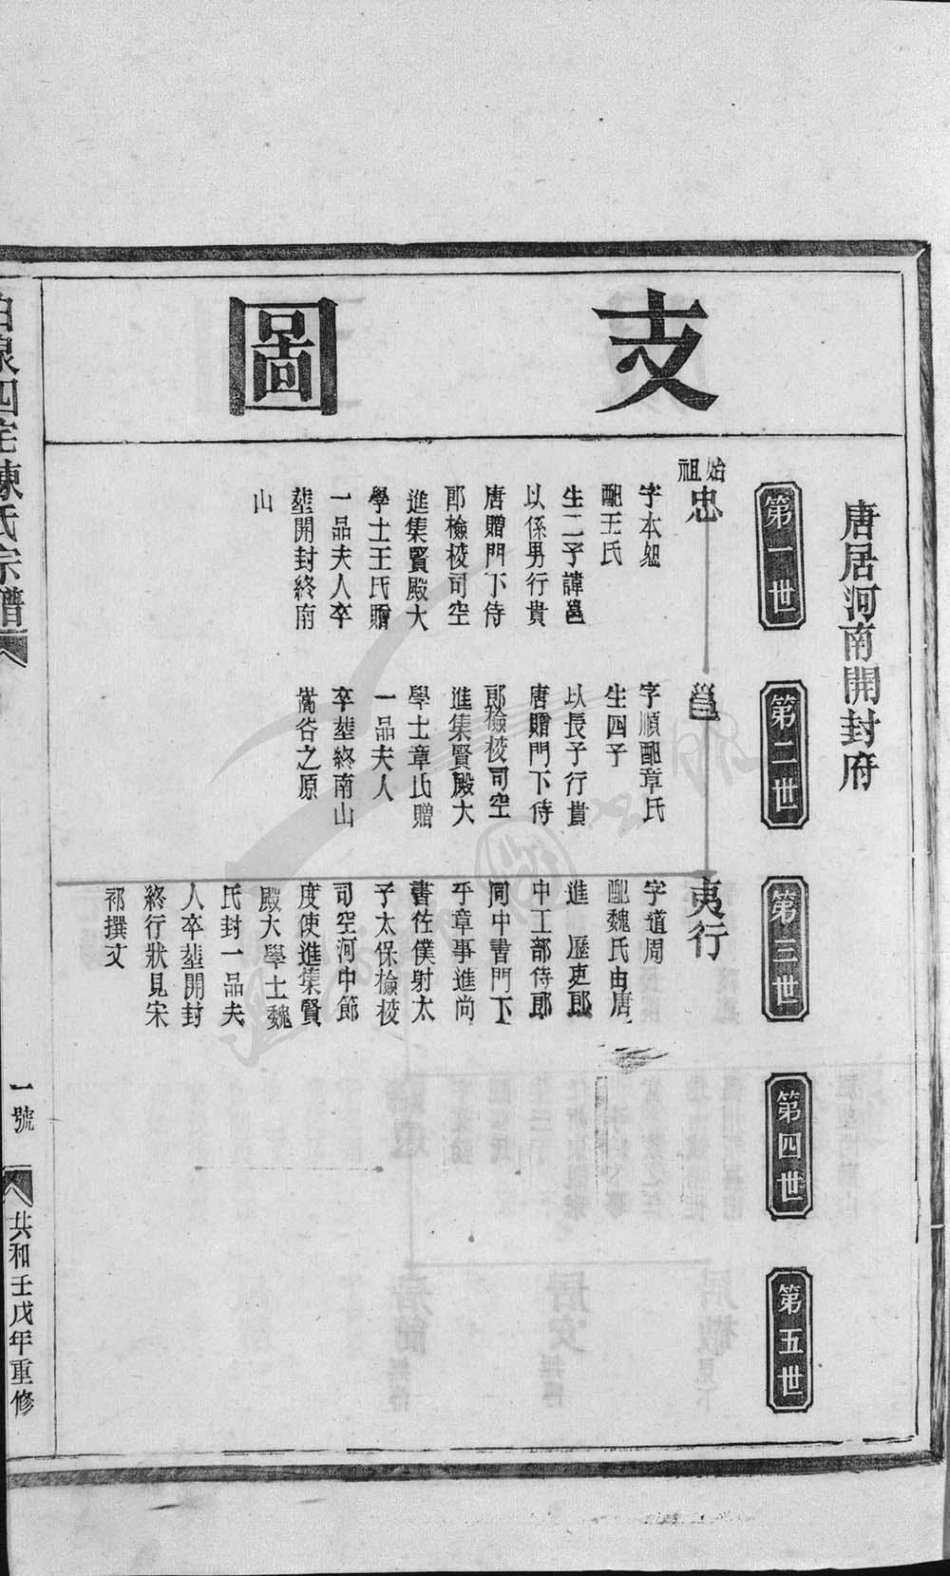 支圖
唐居河南開封府
第一世
第二世
第三世
第四世
第五世
始祖
忠
字本組
配王氏
生二子諱邕
以係男行貴
唐贈門下侍
郎檢校司空
進集賢殿大
學士王氏贈
一品夫人卒
塟開封終南
山
邕
字順配章氏
生四子
以長子行貴
唐贈門下侍
郎檢校司空
進集賢殿大
學士章氏贈
一品夫人
卒塟終南山
嵩谷之原
夷行
字道周
配魏氏由唐
進 歷吏郎
中工部侍郎
同中書門下
平章事進尚
書佐僕射太
子太保檢校
司空河中節
度使進集賢
殿大學士魏
氏封一品夫
人卒塟開封
終行狀見宋
祁撰文
白泉四宅陳氏宗譜
一號
共和壬戌年重修